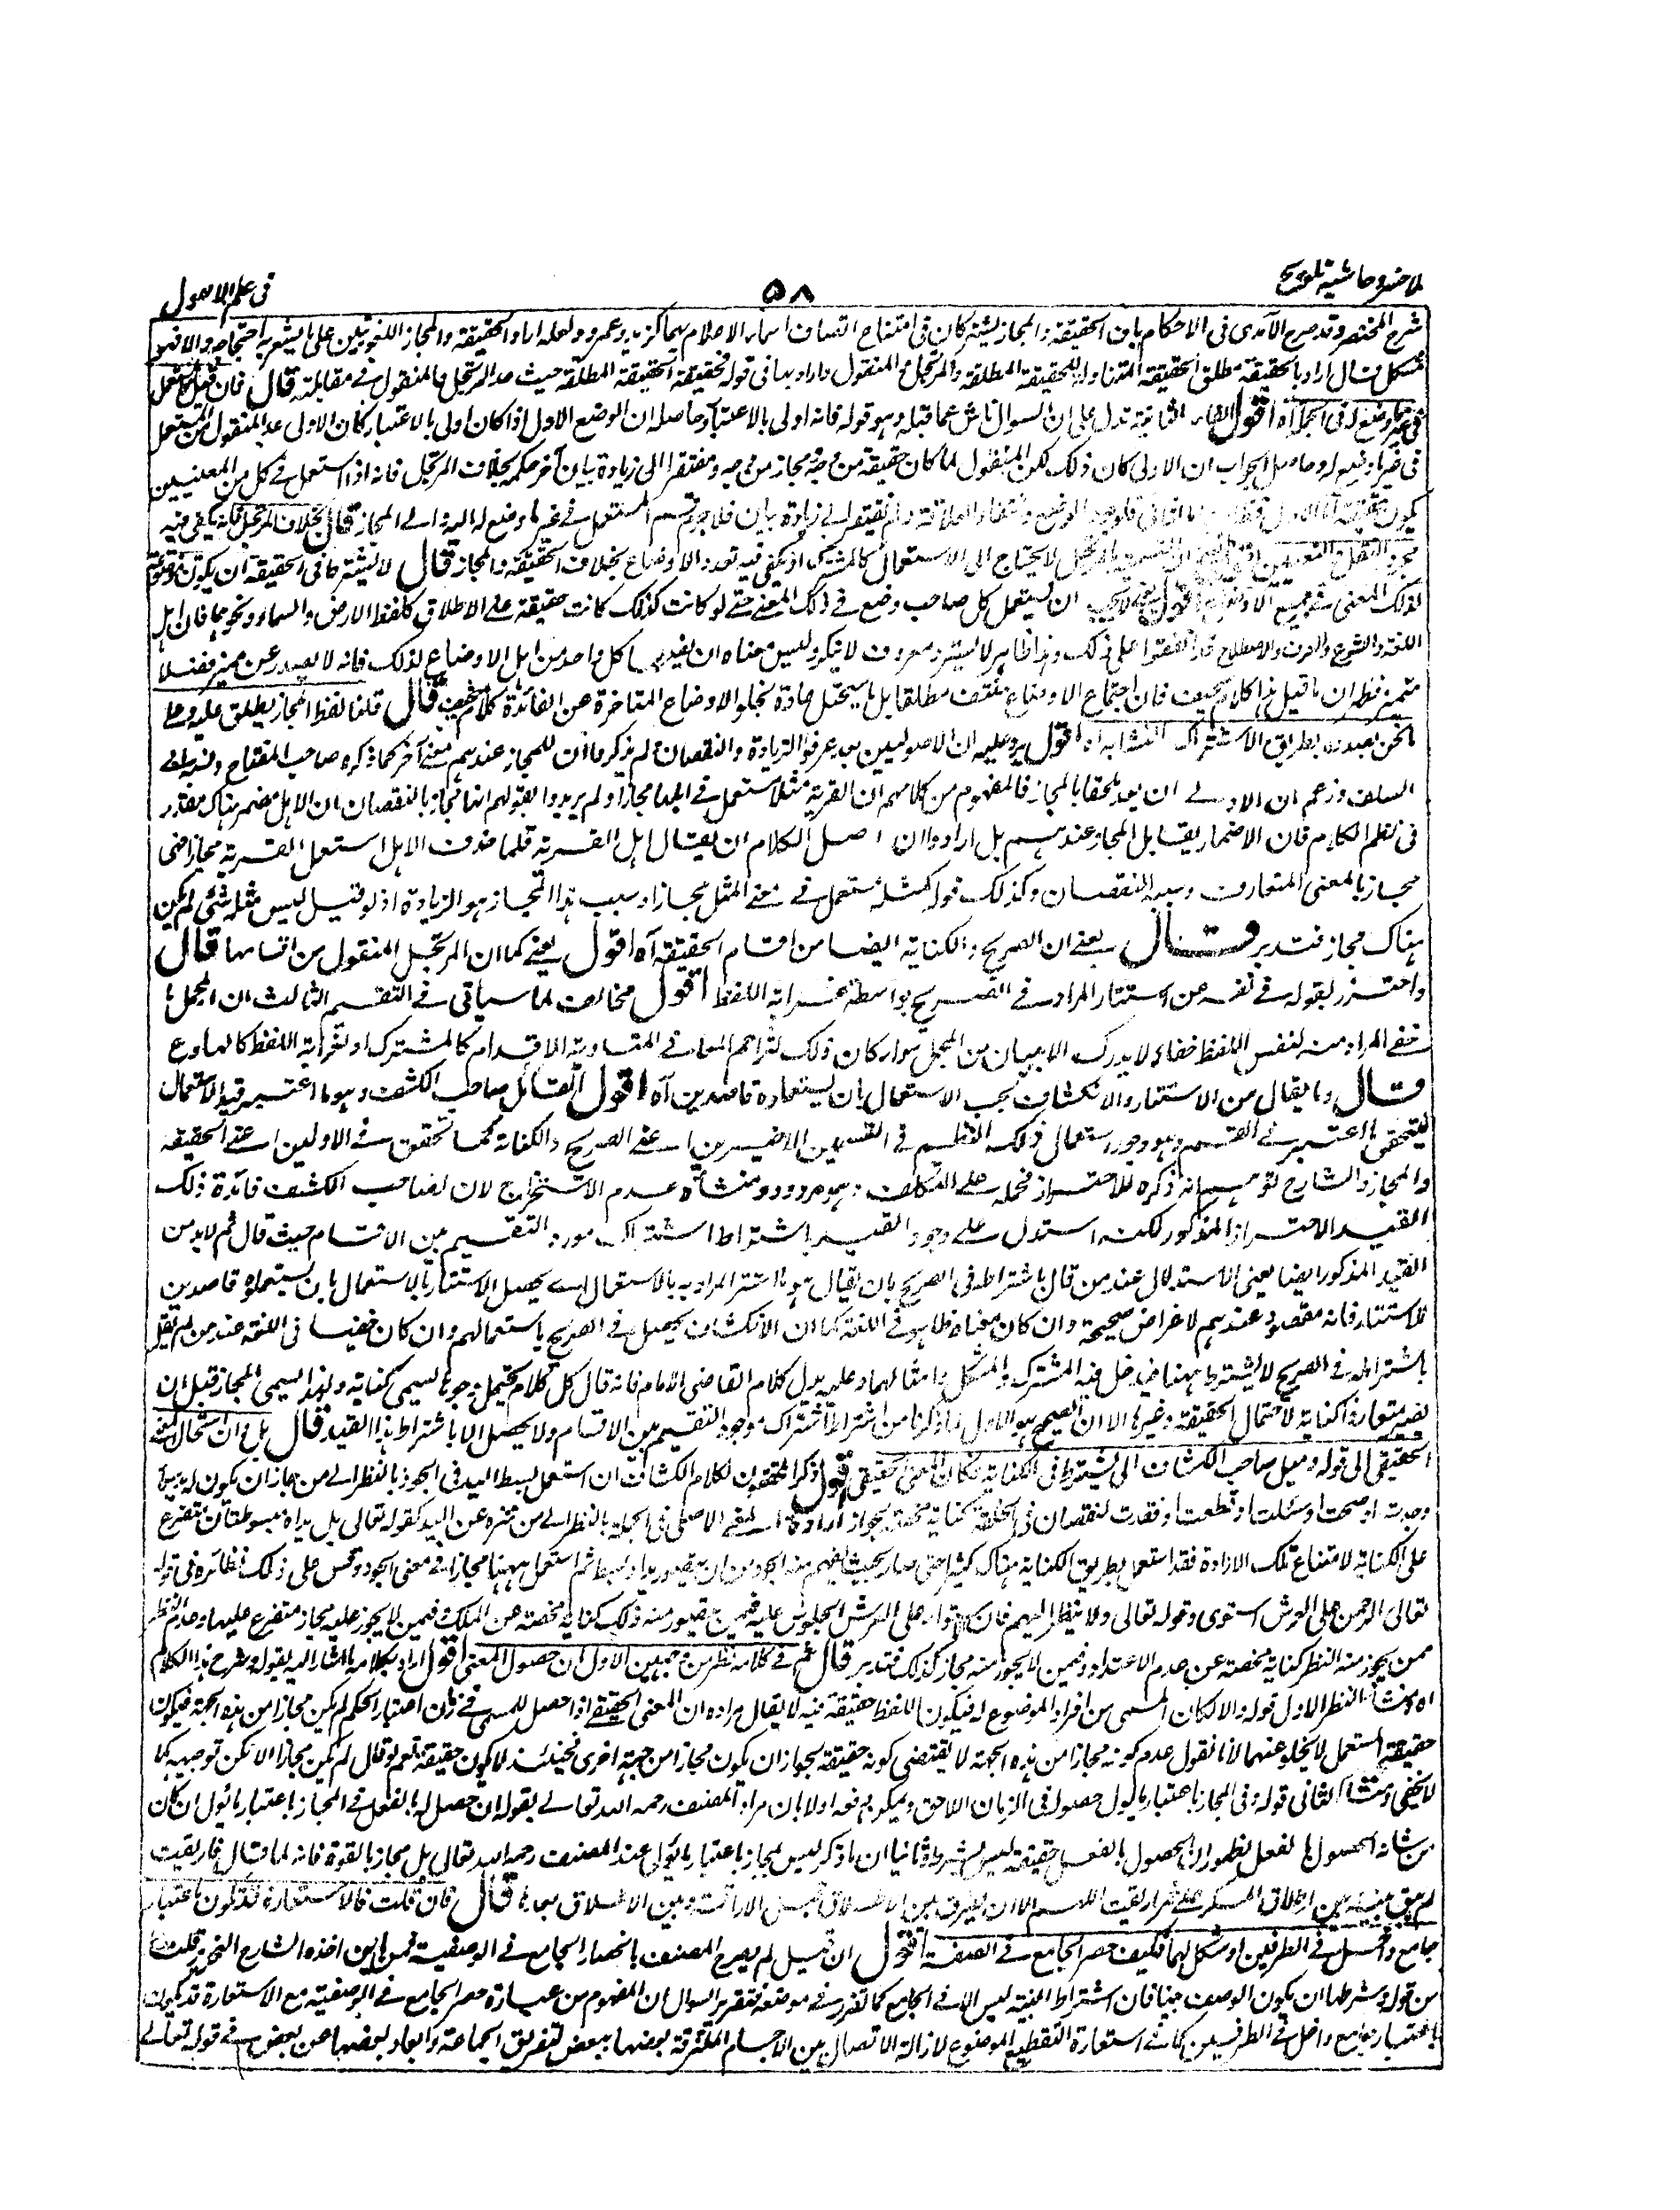 ملا خسرو حاشيه تلويح
٥٨
فى علم الاصول
شرح المختصر وقد صرح الآمدى فى الاحكام بان الحقيقة والمجاز يشتركان فى امتناع اتصاف اسماء الاعلام بهما كزيد وعمرو ولعله اراد الحقيقة والمجاز اللغويين على ما يشعر به احتجاجه والا فهو
مشكل قال اراد بالحقيقة مطلق الحقيقة المتناولة للحقيقة المطلقة والمرتجل والمنقول واراد بها فى قوله فحقيقة الحقيقة المطلقة حيث عد المرتجل والمنقول فى مقابلته قال فان قيل المستعمل
فى غير ما وضع له فى الجملة آه اقول الفاء الثانية تدل على ان السوال ناش عما قبله وهو قوله فانه اولى بالاعتبار وحاصله ان الوضع الاول اذا كان اولى بالاعتبار كان الاولى عد المنقول من المستعمل
فى غير ما وضع له وحاصل الجواب ان الاولى كان ذلك لكن المنقول لما كان حقيقة من وجه مجازا من وجه ومفتقرا الى زيادة بيان آخر حكمه بخلاف المرتجل فانه اذا استعمل فى كل من المعنيين
يكون حقيقة اما الاول فظاهر واما الثانى فلوجود الوضع وانتفاء العلاقة ولم يفتقر الى زيادة بيان فلا جرم قسم المستعمل فى غير ما وضع له اليه والى المجاز قال بخلاف المرتجل فانه يكفى فيه
مجرد النقل والتعيين اقول لا يحتاج الى الاستعمال كالمشترك اذ يكفى فيه تعدد الاوضاع بخلاف الحقيقة والمجاز قال لا يشترط فى الحقيقة ان يكون موضوعة
لذلك المعنى فى جميع الاوضاع اقول يعنى لا يجب ان يستعمل كل صاحب وضع فى ذلك المعنى حتى لو كانت كذلك كانت حقيقة على الاطلاق كلفظ الارض والسماء ونحوهما فان اهل
اللغة والشرع والعرف والاصطلاح قد اتفقوا على ذلك وهذا ظاهر لا يستتر ومعروف لا ينكر وليس معناه ان يضعه كل واحد من اهل الاوضاع لذلك فانه لا يصدر عن مميز فضلا
متميز فظهر ان ما قيل هذا كلام سخيف فان اجتماع الاوضاع منتف مطلقا بل يستحيل عادة لخلو الاوضاع المتاخرة عن الفائدة كلام سخيف قال قلنا لفظ المجاز يطلق عليه وعلى
ما نحن بصدده بطريق الاشتراك او التشابه آه اقول يرد عليه ان الاصوليين بعد ما عرفوا الزيادة والنقصان لم يذكروا ان للمجاز عندهم معنى آخر كما ذكره صاحب المفتاح ونسبه الى
السلف وزعم ان الاولى ان يعد ملحقا بالمجاز فالمفهوم من كلامهم ان القرية مثلا مستعمل فى اهلها مجازا ولم يريدوا بقولهم انها مجاز بالنقصان ان الاهل مضمر هناك مقدر
فى نظم الكلام فان الاضمار يقابل المجاز عندهم بل ارادوا ان اصل الكلام ان يقال اهل القرية فلما حذف الاهل استعمل القرية مجازا فهى
مجاز بالمعنى المتعارف وسببه النقصان وكذلك قوله كمثله مستعمل فى معنى المثل مجازا وسبب هذا المجاز هو الزيادة اذ لو قيل ليس مثله شئ لم يكن
هناك مجاز فتدبر قال يعنى ان الصريح والكناية ايضا من اقسام الحقيقة آه اقول يعنى كما ان المرتجل المنقول من اقسامها قال
واحترز بقوله فى نفسه عن استتار المراد فى الصريح بواسطة غرابة اللفظ اقول مخالف لما سياتى فى التقسيم الثالث ان المجمل ما
خفى المراد منه لنفس اللفظ خفاء لا يدرك الا ببيان من المجمل سواء كان ذلك لتزاحم المعانى المتساوية الاقدام كالمشترك او لغرابة اللفظ كالهلوع
قال وما يقال من الاستتار والانكشاف بحسب الاستعمال بان يستعملوه قاصدين آه اقول القائل صاحب الكشف وهو ما اعتبر قيد الاستعمال
ليتحقق ما اعتبر فى القسم وهو وجوه استعمال ذلك النظم فى القسمين الاخيرين اعنى الصريح والكناية كما تحقق فى الاولين اعنى الحقيقة
والمجاز والشارح توهم انه ذكره للاحتراز فحمله على التكلف وهو مردود ومنشأه عدم الاستخراج لان لصاحب الكشف فائدة ذلك
القيد الاحتراز المذكور لكنه استدل على وجود القيد باشتراط اشتراك مورد التقسيم بين الاقسام حيث قال ثم لابد من
القيد المذكور ايضا يعنى الاستدلال عند من قال باشتراطه فى الصريح بان يقال هو ما استتر المراد به بالاستعمال اى يحصل الاستتار بالاستعمال بان يستعملوه قاصدين
للاستتار فانه مقصود عندهم لاغراض صحيحة وان كان معناه ظاهرا فى اللغة كما ان الانكشاف يحصل فى الصريح باستعمالهم وان كان خفيا فى اللغة عند من لم يقل
باشتراطه فى الصريح لا يشترط ههنا فيدخل فيه المشترك والمشكل وامثالهما وعليه يدل كلام القاضى الامام فانه قال كل كلام يحتمل وجوها يسمى كناية ولهذا يسمى المجاز قبل ان
يصير متعارفا كناية لاحتمال الحقيقة وغيرها الا ان الصحيح هو الاول لما ذكرنا من اشتراط اشتراك موجود التقسيم بين الاقسام ولا يحصل الا باشتراط هذا القيد قال بلى وان استحال المعنى
الحقيقى الى قوله وميل صاحب الكشاف الى يشترط فى الكناية امكان المعنى الحقيقى اقول ذكر المحققون لكلام الكشاف ان استعمل بسط اليد فى الجود بالنظر الى من جاز ان يكون له يد سواء
وجدت او صحت او شلت او قطعت او فقدت لنقصان فى الخلقة كناية محضة بجواز ارادة المعنى الاصلى فى الجملة بالنظر الى من تنزه عن اليد كقوله تعالى بل يداه مبسوطتان متفرع
على الكناية لامتناع تلك الارادة فقد استعمل بطريق الكناية هناك كثيرا حتى صار بحيث يفهم منه الجود من ان يتصور يد او بسط ثم استعمل ههنا مجازا فى معنى الجود وقس على ذلك نظائره فى قوله
تعالى الرحمن على العرش استوى وقوله تعالى ولا ينظر اليهم فان الاستواء على العرش الجلوس عليه فيمن يتصور منه ذلك كناية محضة عن الملك وفيمن لا يجوز عليه مجاز متفرع عليها وعدم النظر
ممن يجوز منه النظر كناية محضة عن عدم الاعتداد وفيمن لا يجوز منه مجاز كذلك فتدبر قال ثم فى كلامه نظر من وجهين الاول ان حصول المعنى اقول اراد بكلامه ما اشار اليه بقوله وشرح هذا الكلام
آه ومنشأ النظر الاول قوله والا لكان المسمى من افراد الموضوع له فيكون اللفظ حقيقة فيه لا يقال مراده ان المعنى الحقيقى اذا حصل للمسمى فى زمان اعتبار الحكم لم يكن مجازا من هذه الجهة فيكون
حقيقة المستعمل لا يخلو عنهما لانا نقول عدم كونه مجازا من هذه الجهة لا يقتضى كونه حقيقة لجواز ان يكون مجازا من جهة اخرى فحينئذ لا يكون حقيقة نعم لو قال لم يكن مجازا لامكن توجيهه كما
لا يخفى ومنشأ الثانى قوله وفى المجاز باعتبار ما يؤل حصوله فى الزمان اللاحق ويمكن دفعه اولا بان مراد المصنف رحمه الله تعالى بقوله ان حصل له بالفعل فى المجاز باعتبار ما يؤل ان كان
من شانه الحصول بالفعل لظهور ان الحصول بالفعل حقيقة ليس بشرط وثانيا ان ما ذكر ليس بمجاز باعتبار ما يؤل عند المصنف رحمه الله تعالى بل مجاز بالقوة فانه لما قال فاريقت
لم يبق بينه وبين اطلاق المسكر على خمر اريقت اللهم الا ان يفرق بين الاطلاق قبل الاراقة وبين الاطلاق بعدها قال فان قلت فالاستعارة قد تكون باعتبار
جامع داخل فى الطرفين او شكل لهما فكيف حصر الجامع فى الصفة اقول ان قيل لم يصرح المصنف بانحصار الجامع فى الوصفية فمن اين اخذه الشارح النحرير قلت
من قوله وشرطها ان يكون الوصف بينا فان اشتراط البينية ليس الا فى الجامع كما تقرر فى موضعه فتقرير السوال ان المفهوم من عبارة حصر الجامع فى الوصفية مع الاستعارة قد يكون
باعتبار جامع داخل فى الطرفين كما فى استعارة التقطيع الموضوع لازالة الاتصال بين الاجسام الملتزقة بعضها ببعض لتفريق الجماعة وابعاد بعضها عن بعض فى قوله تعالى